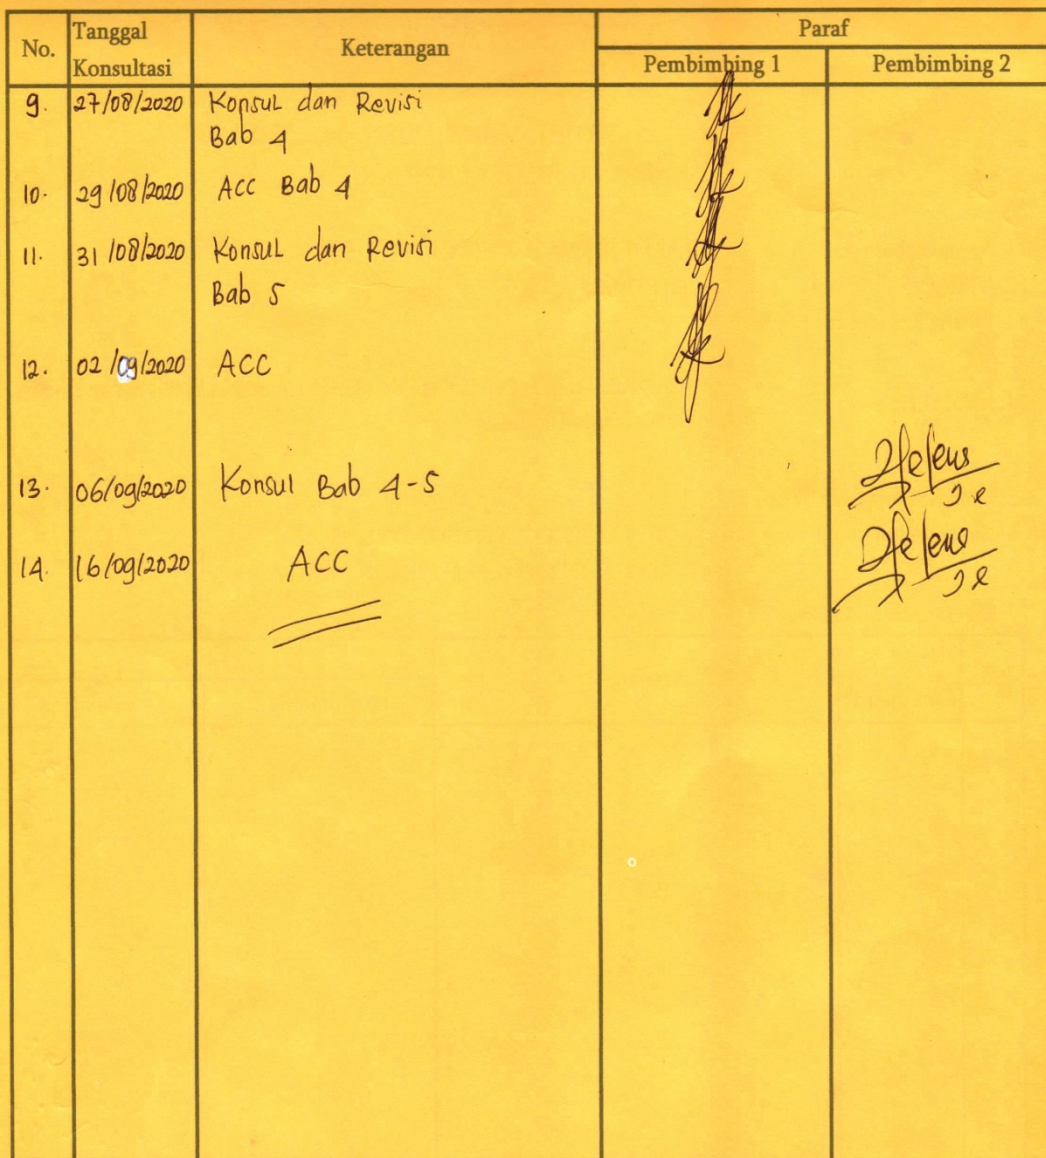 No. Tanggal Konsultasi Keterangan Paraf
Pembimbing 1 Pembimbing 2
9. 27/08/2020 Konsul dan Revisi
Bab 4
10. 29/08/2020 ACC Bab 4
11. 31/08/2020 Konsul dan Revisi
Bab 5
12. 02/09/2020 ACC
13. 06/09/2020 Konsul Bab 4-5
14. 16/09/2020 ACC